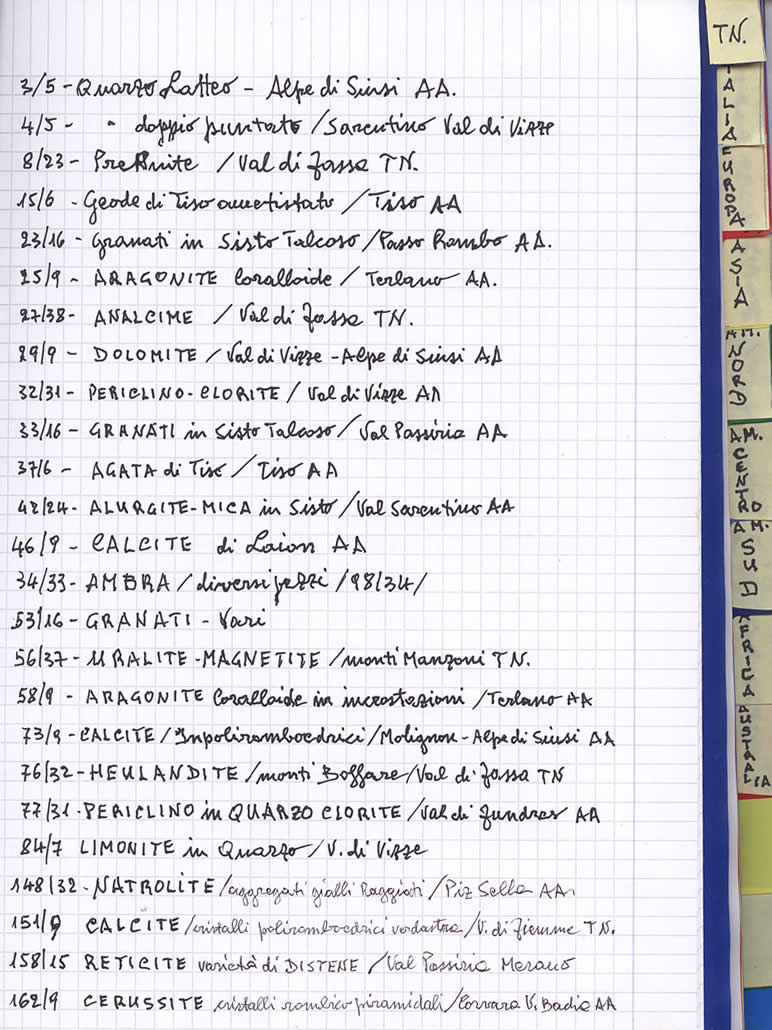 3/5 - Quarzo Latteo - Alpe di Siusi AA.
4/5 - " doppio puntato / Sarentino Val di Vizze
8/23 - Prehnite / Val di Fassa TN.
15/6 - Geode di Tiso ametistato / Tiso AA
23/16 - Granati in Sisto Talcoso / Passo Rombo AA.
25/9 - ARAGONITE Coralloide / Terlano AA.
27/38 - ANALCIME / Val di Fassa TN.
29/9 - DOLOMITE / Val di Vizze - Alpe di Siusi AA
32/31 - PERICLINO - CLORITE / Val di Vizze AA
33/16 - GRANATI in Sisto Talcoso / Val Passiria AA
37/6 - AGATA di Tiso / Tiso AA
42/24 - ALURGITE-MICA in Sisto / Val Sarentino AA
46/9 - CALCITE di Laion AA
34/33 - AMBRA / diversi pezzi / 98/34/
53/16 - GRANATI - Vari
56/37 - URALITE - MAGNETITE / monti Manzoni TN.
58/9 - ARAGONITE Coralloide in incrostazioni / Terlano AA
73/9 - CALCITE / Inpoliromboedrici / Molignon - Alpe di Siusi AA
76/32 - HEULANDITE / monti Boffare / Val di Fassa TN
77/31 - PERICLINO in QUARZO CLORITE / Val di Fundres AA
84/7 LIMONITE in Quarzo / V. di Vizze
148/32 - NATROLITE / aggregati gialli Raggiati / Piz Sella AA
151/9 CALCITE / cristalli poliromboedrici verdastra / V. di Fiemme TN.
158/15 RETICITE varietà di DISTENE / Val Passiria Merano
162/9 CERUSSITE cristalli rombico piramidali / Corvara V. Badia AA
TN.
ITALIA
EUROPA
ASIA
AM. NORD
AM. CENTRO
AM. SUD
AFRICA
AUSTRALIA